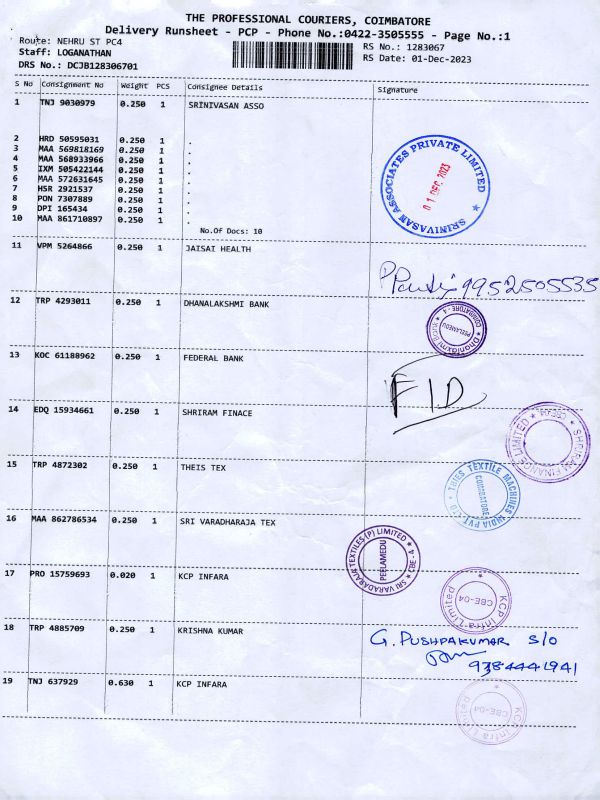 THE PROFESSIONAL COURIERS, COIMBATORE
Delivery Runsheet - PCP - Phone No.:0422-3505555 - Page No.:1
Route: NEHRU ST PC4
RS No.: 1283067
Staff: LOGANATHAN
RS Date: 01-Dec-2023
DRS No.: DCJB128306701
S No Consignment No Weight PCS Consignee Details Signature
1 TNJ 9030979 0.250 1 SRINIVASAN ASSO
2 HRD 50595031 0.250 1 .
3 MAA 569818169 0.250 1 .
4 MAA 568933966 0.250 1 .
5 IXM 505422144 0.250 1 .
6 MAA 572631645 0.250 1 .
7 HSR 2921537 0.250 1 .
8 PON 7307889 0.250 1 .
9 DPI 165434 0.250 1 .
10 MAA 861710897 0.250 1 .
No.Of Docs: 10
SRINIVASAN ASSOCIATES PRIVATE LIMITED
01 DEC 2023
11 VPM 5264866 0.250 1 JAISAI HEALTH
9952505535
12 TRP 4293011 0.250 1 DHANALAKSHMI BANK
Dhanlaxmi Bank
PEELAMEDU
COIMBATORE - 4
13 KOC 61188962 0.250 1 FEDERAL BANK
14 EDQ 15934661 0.250 1 SHRIRAM FINACE
SHRIRAM FINANCE LIMITED
15 TRP 4872302 0.250 1 THEIS TEX
THIES TEXTILE MACHINES INDIA PVT LTD
COIMBATORE
16 MAA 862786534 0.250 1 SRI VARADHARAJA TEX
SRI VARADARAJA TEXTILES (P) LIMITED
PEELAMEDU
CBE - 4
17 PRO 15759693 0.020 1 KCP INFARA
KCP Infra Limited
CBE-04
18 TRP 4885709 0.250 1 KRISHNA KUMAR
G. PUSHPAKUMAR S/O
9384441941
19 TNJ 637929 0.630 1 KCP INFARA
KCP Infra Limited
CBE-04